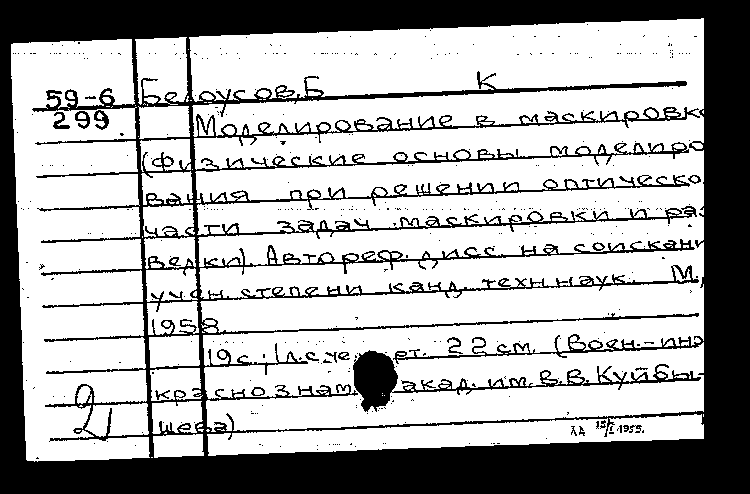 59-6 Белоусов, Б К
299. Моделирование в маскировк
(физические основы моделиро
вания при решении оптическо
части задач маскировки и раз
ведки). Автореф. дисс. на соискани
учен. степени канд. техн. наук. М.,
1958.
19 с.; 1 л. 22 см. (Воен.-инж
краснознам. акад. им. В. В. Куйбы-
2 шева)
1959.